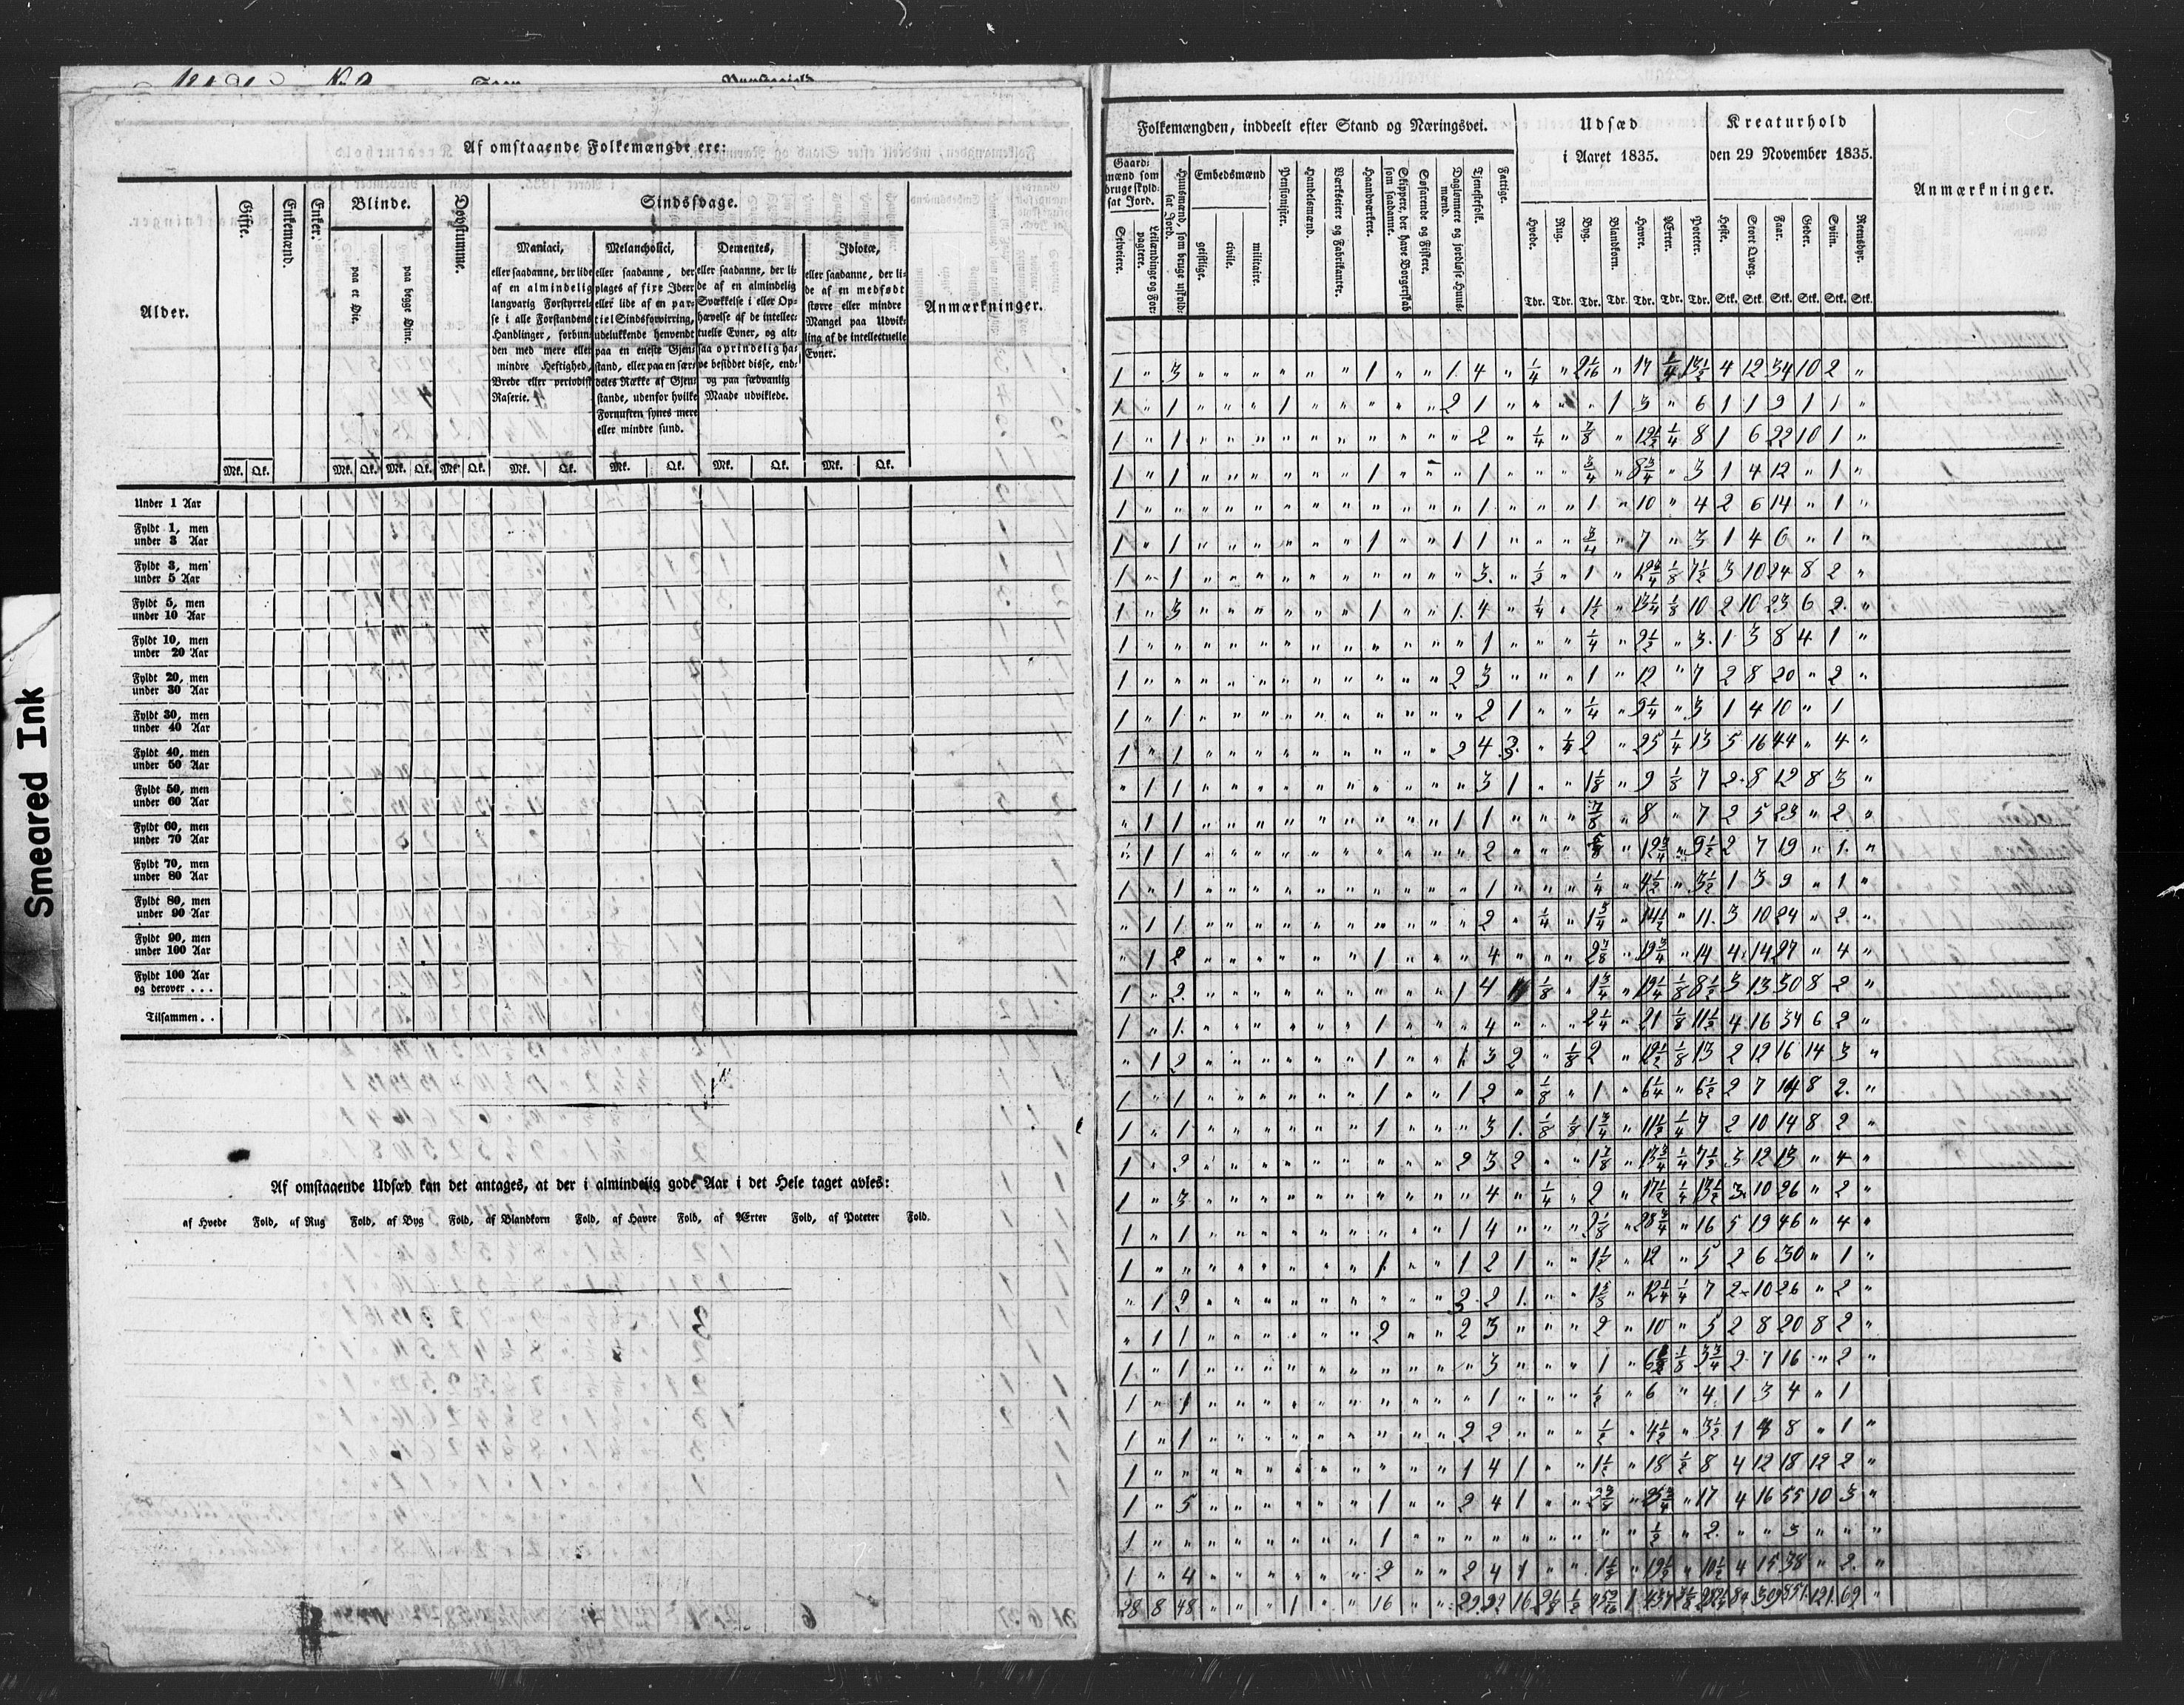 Smeared Ink
Af omstaaende Folkemængde ere:
Alder.
Gifte.
Enkemænd.
Enker.
Blinde.
paa et Øie.
paa begge Øine.
Døvstumme.
Sindssvage.
Maniaci,
eller saadanne, der lide
af en almindelig
langvarig Forstyrrel-
se i alle Forstandens
Handlinger, forbun-
den med mere eller
mindre Heftighed,
Vrede eller periodisk
Raserie.
Melancholici,
eller saadanne, der
plages af fixe Ideer
eller lide af en par-
tiel Sindsforvirring,
udelukkende henvendt
paa en eneste Gjen-
stand, eller paa en sær-
deles Række af Gjen-
stande, udenfor hvilke
Fornuften synes mere
eller mindre sund.
Dementes,
eller saadanne, der li-
de af en almindelig
Svækkelse i eller Op-
hævelse af de intellec-
tuelle Evner, og alt-
saa oprindelig ha-
ve besiddet disse, end-
og paa sædvanlig
Maade udviklede.
Idiotæ,
eller saadanne, der li-
de af en medfødt
større eller mindre
Mangel paa Udvik-
ling af de intellectuelle
Evner.
Anmærkninger.
Mk. Qk. Mk. Qk. Mk. Qk. Mk. Qk. Mk. Qk. Mk. Qk. Mk. Qk. Mk. Qk.
Under 1 Aar
Fyldt 1, men
under 3 Aar
Fyldt 3, men
under 5 Aar
Fyldt 5, men
under 10 Aar
Fyldt 10, men
under 20 Aar
Fyldt 20, men
under 30 Aar
Fyldt 30, men
under 40 Aar
Fyldt 40, men
under 50 Aar
Fyldt 50, men
under 60 Aar
Fyldt 60, men
under 70 Aar
Fyldt 70, men
under 80 Aar
Fyldt 80, men
under 90 Aar
Fyldt 90, men
under 100 Aar
Fyldt 100 Aar
og derover . . .
Tilsammen . .
Af omstaaende Udsæd kan det antages, at der i almindelig gode Aar i det Hele taget avles:
af Hvede Fold, af Rug Fold, af Byg Fold, af Blandkorn Fold, af Havre Fold, af Ærter Fold, af Poteter Fold.
Folkemængden, inddeelt efter Stand og Næringsvei.
Gaard-
mænd som
bruge skyld-
sat Jord.
Selveiere.
Leilændinge og For-
pagtere.
Huusmænd, som bruge uskyld-
sat Jord.
Embedsmænd
geistlige.
civile.
militaire.
Pensionister.
Handelsmænd.
Værkeiere og Fabrikanter.
Haandværkere.
Skippere, der have Borgerskab
som saadanne.
Søfarende og Fiskere.
Daglønnere og jordløse Huus-
mænd.
Tjenestefolk.
Fattige.
Udsæd
i Aaret 1835.
Hvede. Rug. Byg. Blandkorn. Havre. Ærter. Poteter.
Tdr. Tdr. Tdr. Tdr. Tdr. Tdr. Tdr.
Kreaturhold
den 29 November 1835.
Heste. Stort Qvæg. Faar. Geder. Sviin. Reensdyr.
Stk. Stk. Stk. Stk. Stk. Stk.
Anmærkninger.
1 " 3 " " " " " " 1 " " 1 4 " 1/4 " 2 1/16 " 17 1/4 13 1/2 4 12 34 10 2 "
1 " 1 " " " 1 " " " " " 2 1 " " " " 1 3 " 6 1 1 9 1 1 "
1 " 1 " " " " " " " " " " 2 " 1/4 " 7/8 " 12 1/2 1/4 8 1 6 22 10 1 "
1 " 1 " " " " " " 1 " " " 1 " " " 3/4 " 8 3/4 " 3 1 4 12 " 1 "
1 " " " " " " " " " " " " 1 " " " 1 " 10 " 4 2 6 14 " 1 "
1 " 1 " " " " " " 1 " " 1 1 " " " 3/4 " 7 " 3 1 4 6 " 1 "
1 " 1 " " " " " " " " " " 3 " 1/2 " 1 " 12 3/4 1/8 7 1/2 3 10 24 8 2 "
1 " 3 " " " " " " 1 " " 1 4 " 1/4 " 1 1/2 " 13 1/4 1/8 10 2 10 23 6 2 "
1 " " " " " " " " " " " " 1 " " " 1/4 " 2 1/2 " 3 1 3 8 4 1 "
1 " " " " " " " " " " " 2 3 " " " 1 " 12 " 7 2 8 20 " 2 "
1 " 1 " " " " " " " " " " 2 1 " " 1/4 " 9 1/4 " 3 1 4 10 " 1
1 " 1 " " " " " " " " " 2 4 3 " 1/4 2 " 25 1/4 13 5 16 44 " 4 "
" 1 1 " " " " " " " " " " 3 1 " " 1 1/8 " 9 1/8 7 2 8 12 8 3 "
" 1 1 " " " " " " " " " 1 1 " " " 7/8 " 8 " 7 2 5 23 " 2 "
" 1 1 " " " " " " " " " " 2 " " " 5/8 " 12 3/4 " 9 1/2 2 7 19 " 1 "
1 " 1 " " " " " " " " " " 1 " " " 1/4 " 4 1/2 " 3 1/2 1 3 9 " 1 "
" 1 1 " " " " " " " " " " 2 " 1/4 " 1 3/4 " 14 1/2 " 11 3 10 24 " 2 "
" 1 2 " " " " " " 1 " " " 4 " " " 2 7/8 " 19 3/4 " 14 4 14 27 " 4 "
1 " 2 " " " " " " " " " 1 4 1 1/8 " 1 3/4 " 19 1/4 1/8 8 1/2 3 13 30 8 2 "
1 " 1 " " " " " " 1 " " " 4 " " " 2 1/4 " 21 1/8 11 1/2 4 16 34 6 2 "
" 1 2 " " " " " " 1 " " 1 3 2 " 1/8 2 " 19 1/2 1/8 13 2 12 16 14 3 "
1 " 1 " " " " " " 1 " " 1 2 " 1/8 " 1 " 6 1/4 " 6 1/2 2 7 14 8 2 "
1 " 1 " " " " " " 1 " " " 3 1 1/8 1/8 1 3/4 " 11 1/2 1/4 7 2 10 14 8 2 "
1 " 2 " " " " " " " " " 2 3 2 " " 1 7/8 " 13 3/4 1/4 7 1/2 3 12 13 " 4 "
1 " 3 " " " " " " " " " " 4 " 1/4 " 2 " 17 1/2 1/4 13 1/2 3 10 26 " 2 "
1 " 1 " " " " " " " " " 1 4 " " " 2 1/8 " 28 3/4 " 16 5 19 46 " 4 "
1 " " " " " " " " 1 " " 1 2 1 " " 1 1/2 " 12 " 5 2 6 30 " 1 "
" 1 2 " " " " " " " " " 2 2 1 " " 1 5/8 " 12 1/4 1/4 7 2 10 26 " 2 "
" 1 1 " " " " " " 2 " " 2 3 " " " 2 " 10 " 5 2 8 20 8 2 "
1 " 1 " " " " " " " " " " 3 " " " 1 " 1/8 3 3/4 2 7 16 " 2 "
1 " 1 " " " " " " " " " " 1 " " " 1/2 " 6 " 4 1 3 4 " 1
1 " 1 " " " " " " " " " 2 2 " " " 1/2 " 4 1/2 " 3 1/2 1 4 8 " 1 "
1 " " " " " " " " " " " 1 4 1 " " 1 1/2 " 18 1/2 8 4 12 18 12 2 "
1 " 5 " " " " " " 1 " " 2 4 1 " " 2 3/8 " " 17 4 16 55 10 3 "
1 " " " " " " " " 1 " " " " " " " " " 1/2 " 2 " " 3 " " "
1 " 4 " " " " " " 2 " " 2 4 1 " " " 19 1/2 " 10 1/2 4 15 38 " 2 "
28 8 48 " " " 1 " " 16 " " 16 1/2 1 84 309 121 69 "